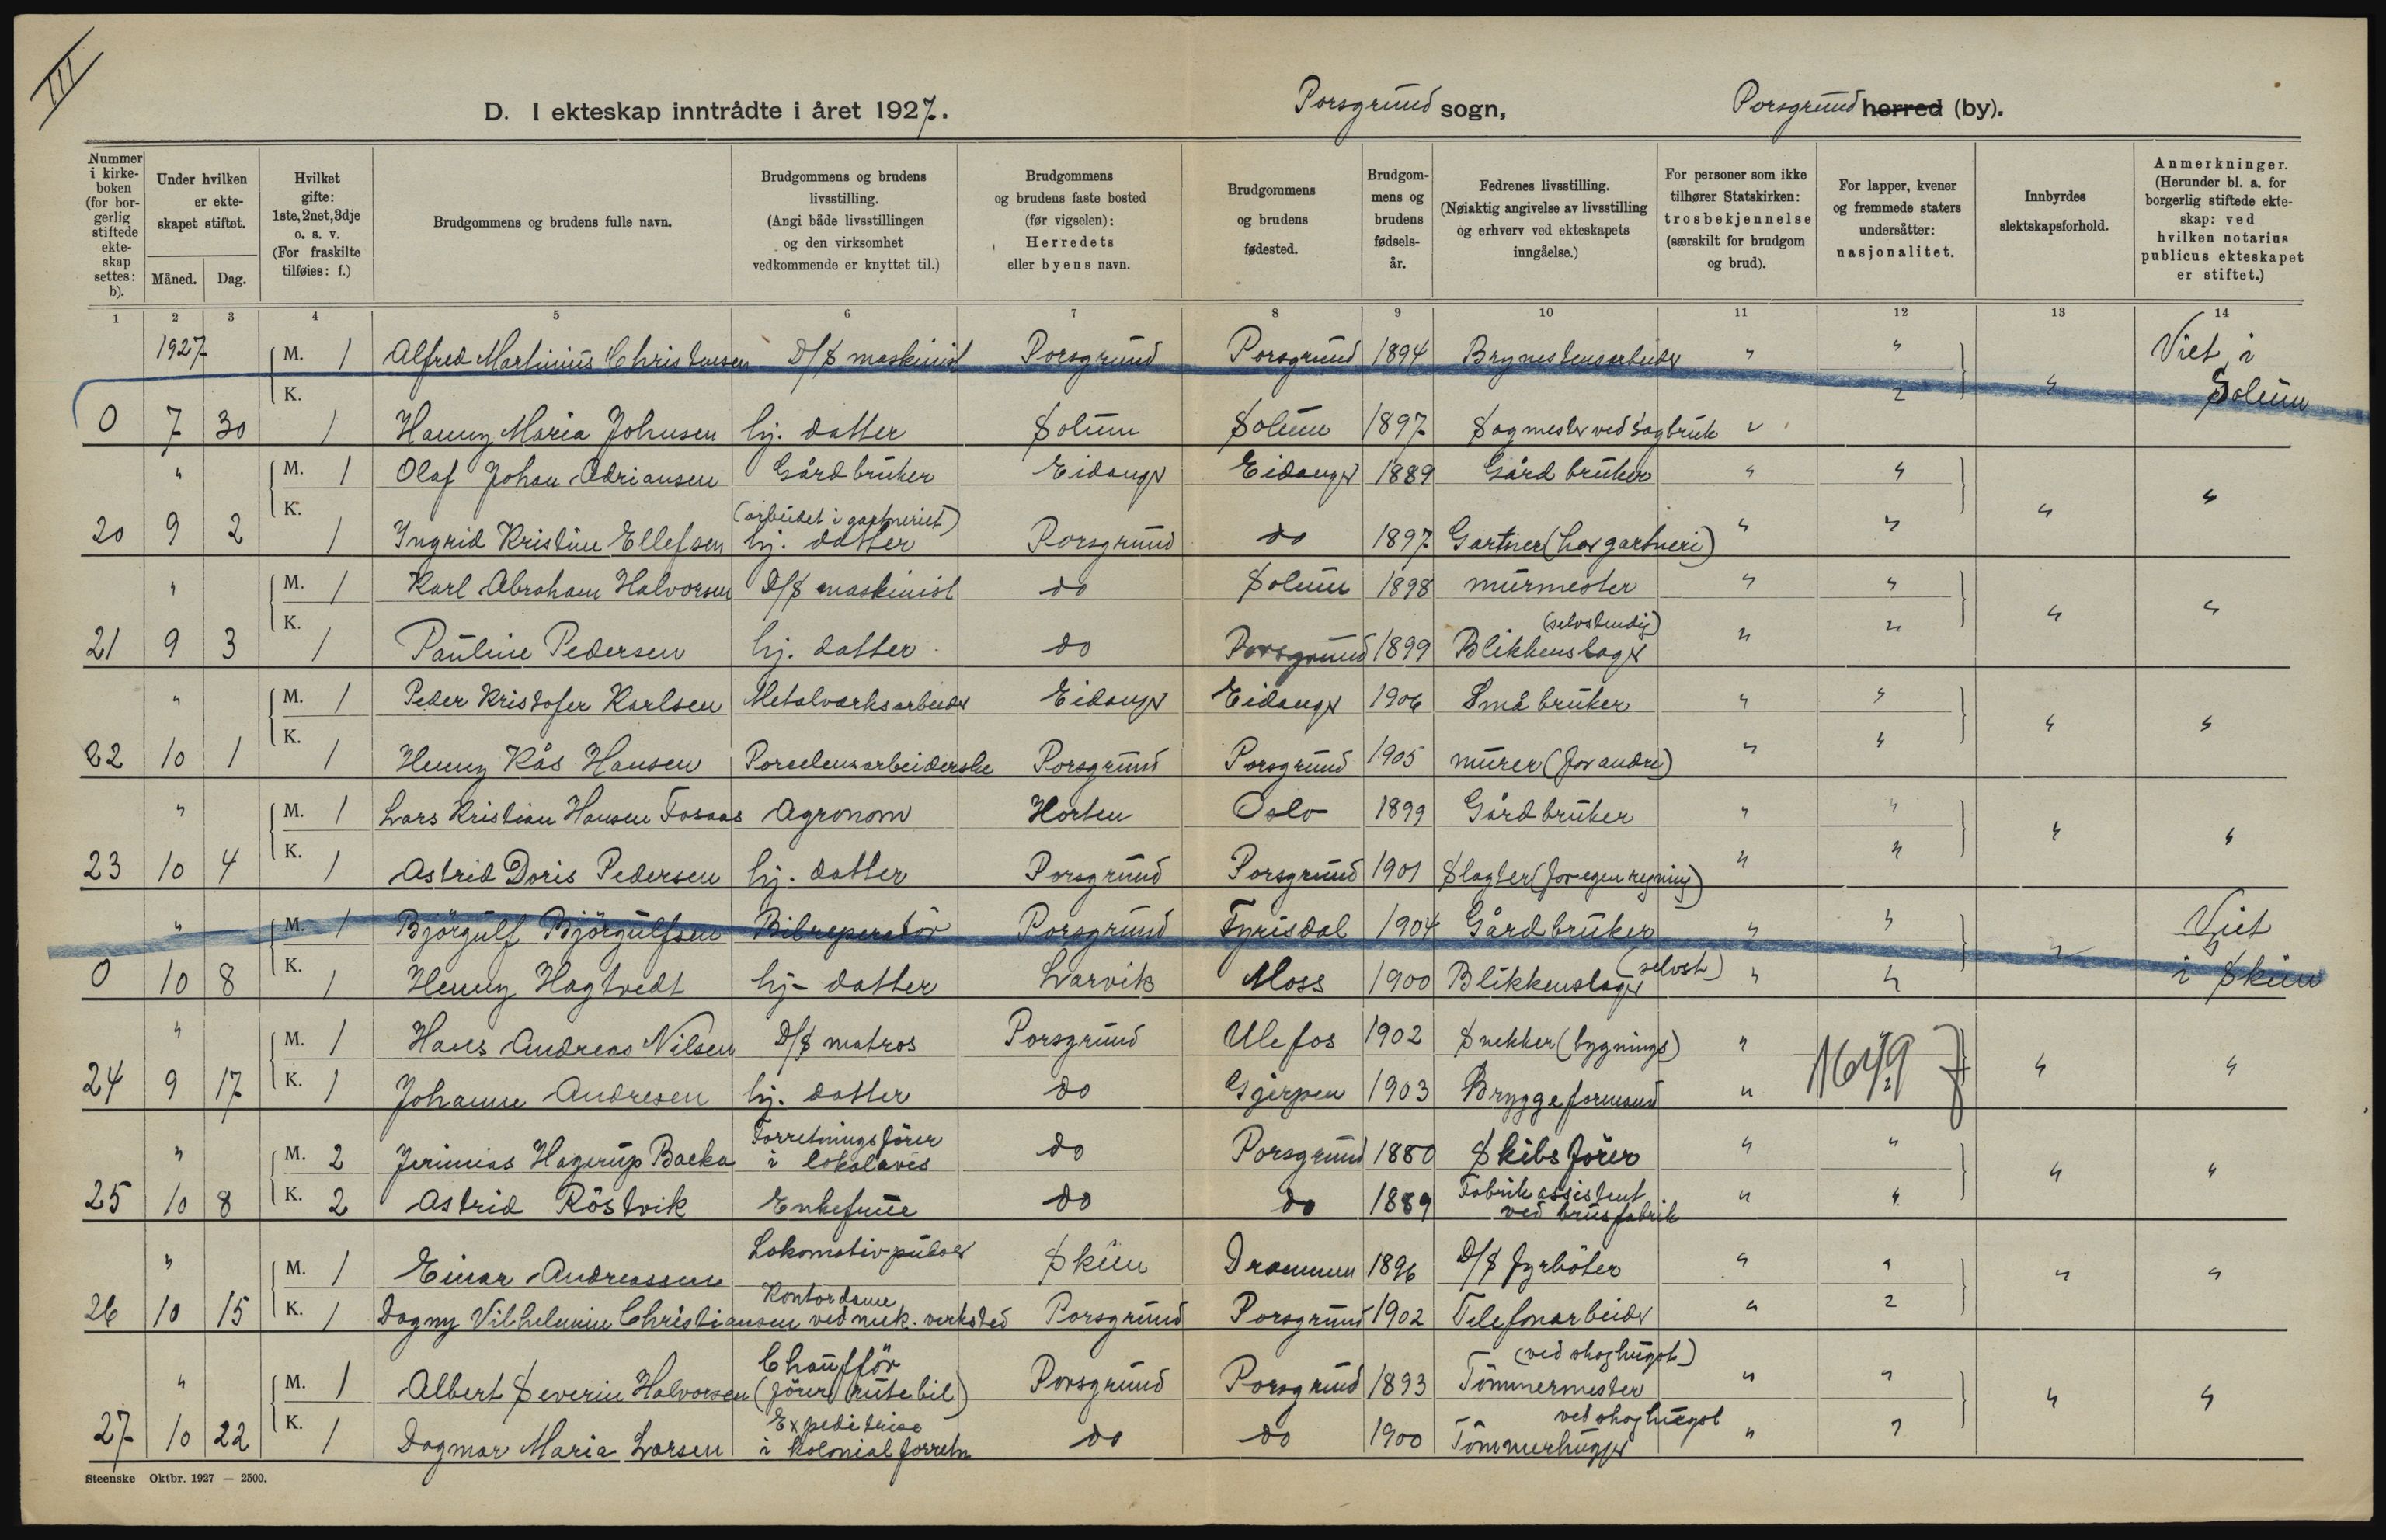 III
D. I ekteskap inntrådte i året 1927. Porsgrund sogn, Porsgrund herred (by).
Nummer i kirkeboken (for borgerlig stiftede ekteskap settes: b).
Under hvilken er ekteskapet stiftet.
Måned. Dag.
Hvilket gifte: 1ste, 2net, 3dje o. s. v. (For fraskilte tilføies: f.)
Brudgommens og brudens fulle navn.
Brudgommens og brudens livsstilling. (Angi både livsstillingen og den virksomhet vedkommende er knyttet til.)
Brudgommens og brudens faste bosted (før vigselen): Herredets eller byens navn.
Brudgommens og brudens fødested.
Brudgommens og brudens fødselsår.
Fedrenes livsstilling. (Nøiaktig angivelse av livsstilling og erhverv ved ekteskapets inngåelse.)
For personer som ikke tilhører Statskirken: trosbekjennelse (særskilt for brudgom og brud).
For lapper, kvener og fremmede staters undersåtter: nasjonalitet.
Innbyrdes slektskapsforhold.
Anmerkninger. (Herunder bl. a. for borgerlig stiftede ekteskap: ved hvilken notarius publicus ekteskapet er stiftet.)
1 2 3 4 5 6 7 8 9 10 11 12 13 14
1927 M. 1 Alfred Martinius Christensen D/S maskinist Porsgrund Porsgrund 1894 Brynestensarbeider " " Viet i
0 7 30 K. 1 Hanny Maria Johnsen hj. datter Solum Solum 1897 Sagmester ved sagbruk " " " Solum
" M. 1 Olaf Johan Adriansen Gårdbruker Eidanger Eidanger 1889 Gårdbruker " "
(arbeidet i gartneriet)
20 9 2 K. 1 Ingrid Kristine Ellefsen hj. datter Porsgrund do 1897 Gartner (har gartneri) " " " "
" M. 1 Karl Abraham Halvorsen D/S maskinist do Solum 1898 murmester " "
(selvstendig)
21 9 3 K. 1 Pauline Pedersen hj. datter do Porsgrund 1899 Blikkenslager " " " "
" M. 1 Peder Kristofer Karlsen Metalverksarbeider Eidanger Eidanger 1906 Småbruker " "
22 10 1 K. 1 Henny Kås Hansen Porcelensarbeiderske Porsgrund Porsgrund 1905 murer (for andre) " " " "
" M. 1 Lars Kristian Hansen Fosaas Agronom Horten Oslo 1899 Gårdbruker " "
23 10 4 K. 1 Astrid Doris Pedersen hj. datter Porsgrund Porsgrund 1901 Slagter (for egen regning) " " " "
" M. 1 Bjørgulf Bjørgulfsen Bilreperatör Porsgrund Fyrisdal 1904 Gårdbruker " " Viet
0 10 8 K. 1 Henny Hagtvedt hj. datter Larvik Moss 1900 Blikkenslager (selvst) " " " i Skien
" M. 1 Hans Andreas Nilsen D/S matros Porsgrund Ulefos 1902 Snekker (bygnings) "
24 9 17 K. 1 Johanne Andresen hj. datter do Gjerpen 1903 Bryggeformand " " "
" M. 2 Jerimias Hagerup Backa Forretningsfører i lokalavis do Porsgrund 1880 Skibsfører " "
25 10 8 K. 2 Astrid Röstvik Enkefrue do do 1889 Fabrikassistent ved brusfabrik " " " "
" M. 1 Einar Andreassen Lokomotivpusser Skien Drammen 1896 D/S fyrböter " "
26 10 15 K. 1 Dagny Vilhelmine Christiansen Kontordame ved mek. verksted Porsgrund Porsgrund 1902 Telefonarbeider " " " "
" M. 1 Albert Severin Halvorsen Chaufför (förer rutebil) Porsgrund Porsgrund 1893 Tömmermester (ved skoghugst) " "
27 10 22 K. 1 Dagmar Maria Larsen Expeditrise i kolonialforretn do do 1900 Tömmerhugger ved skoghugst " " " "
Steenske Oktbr. 1927 — 2500.